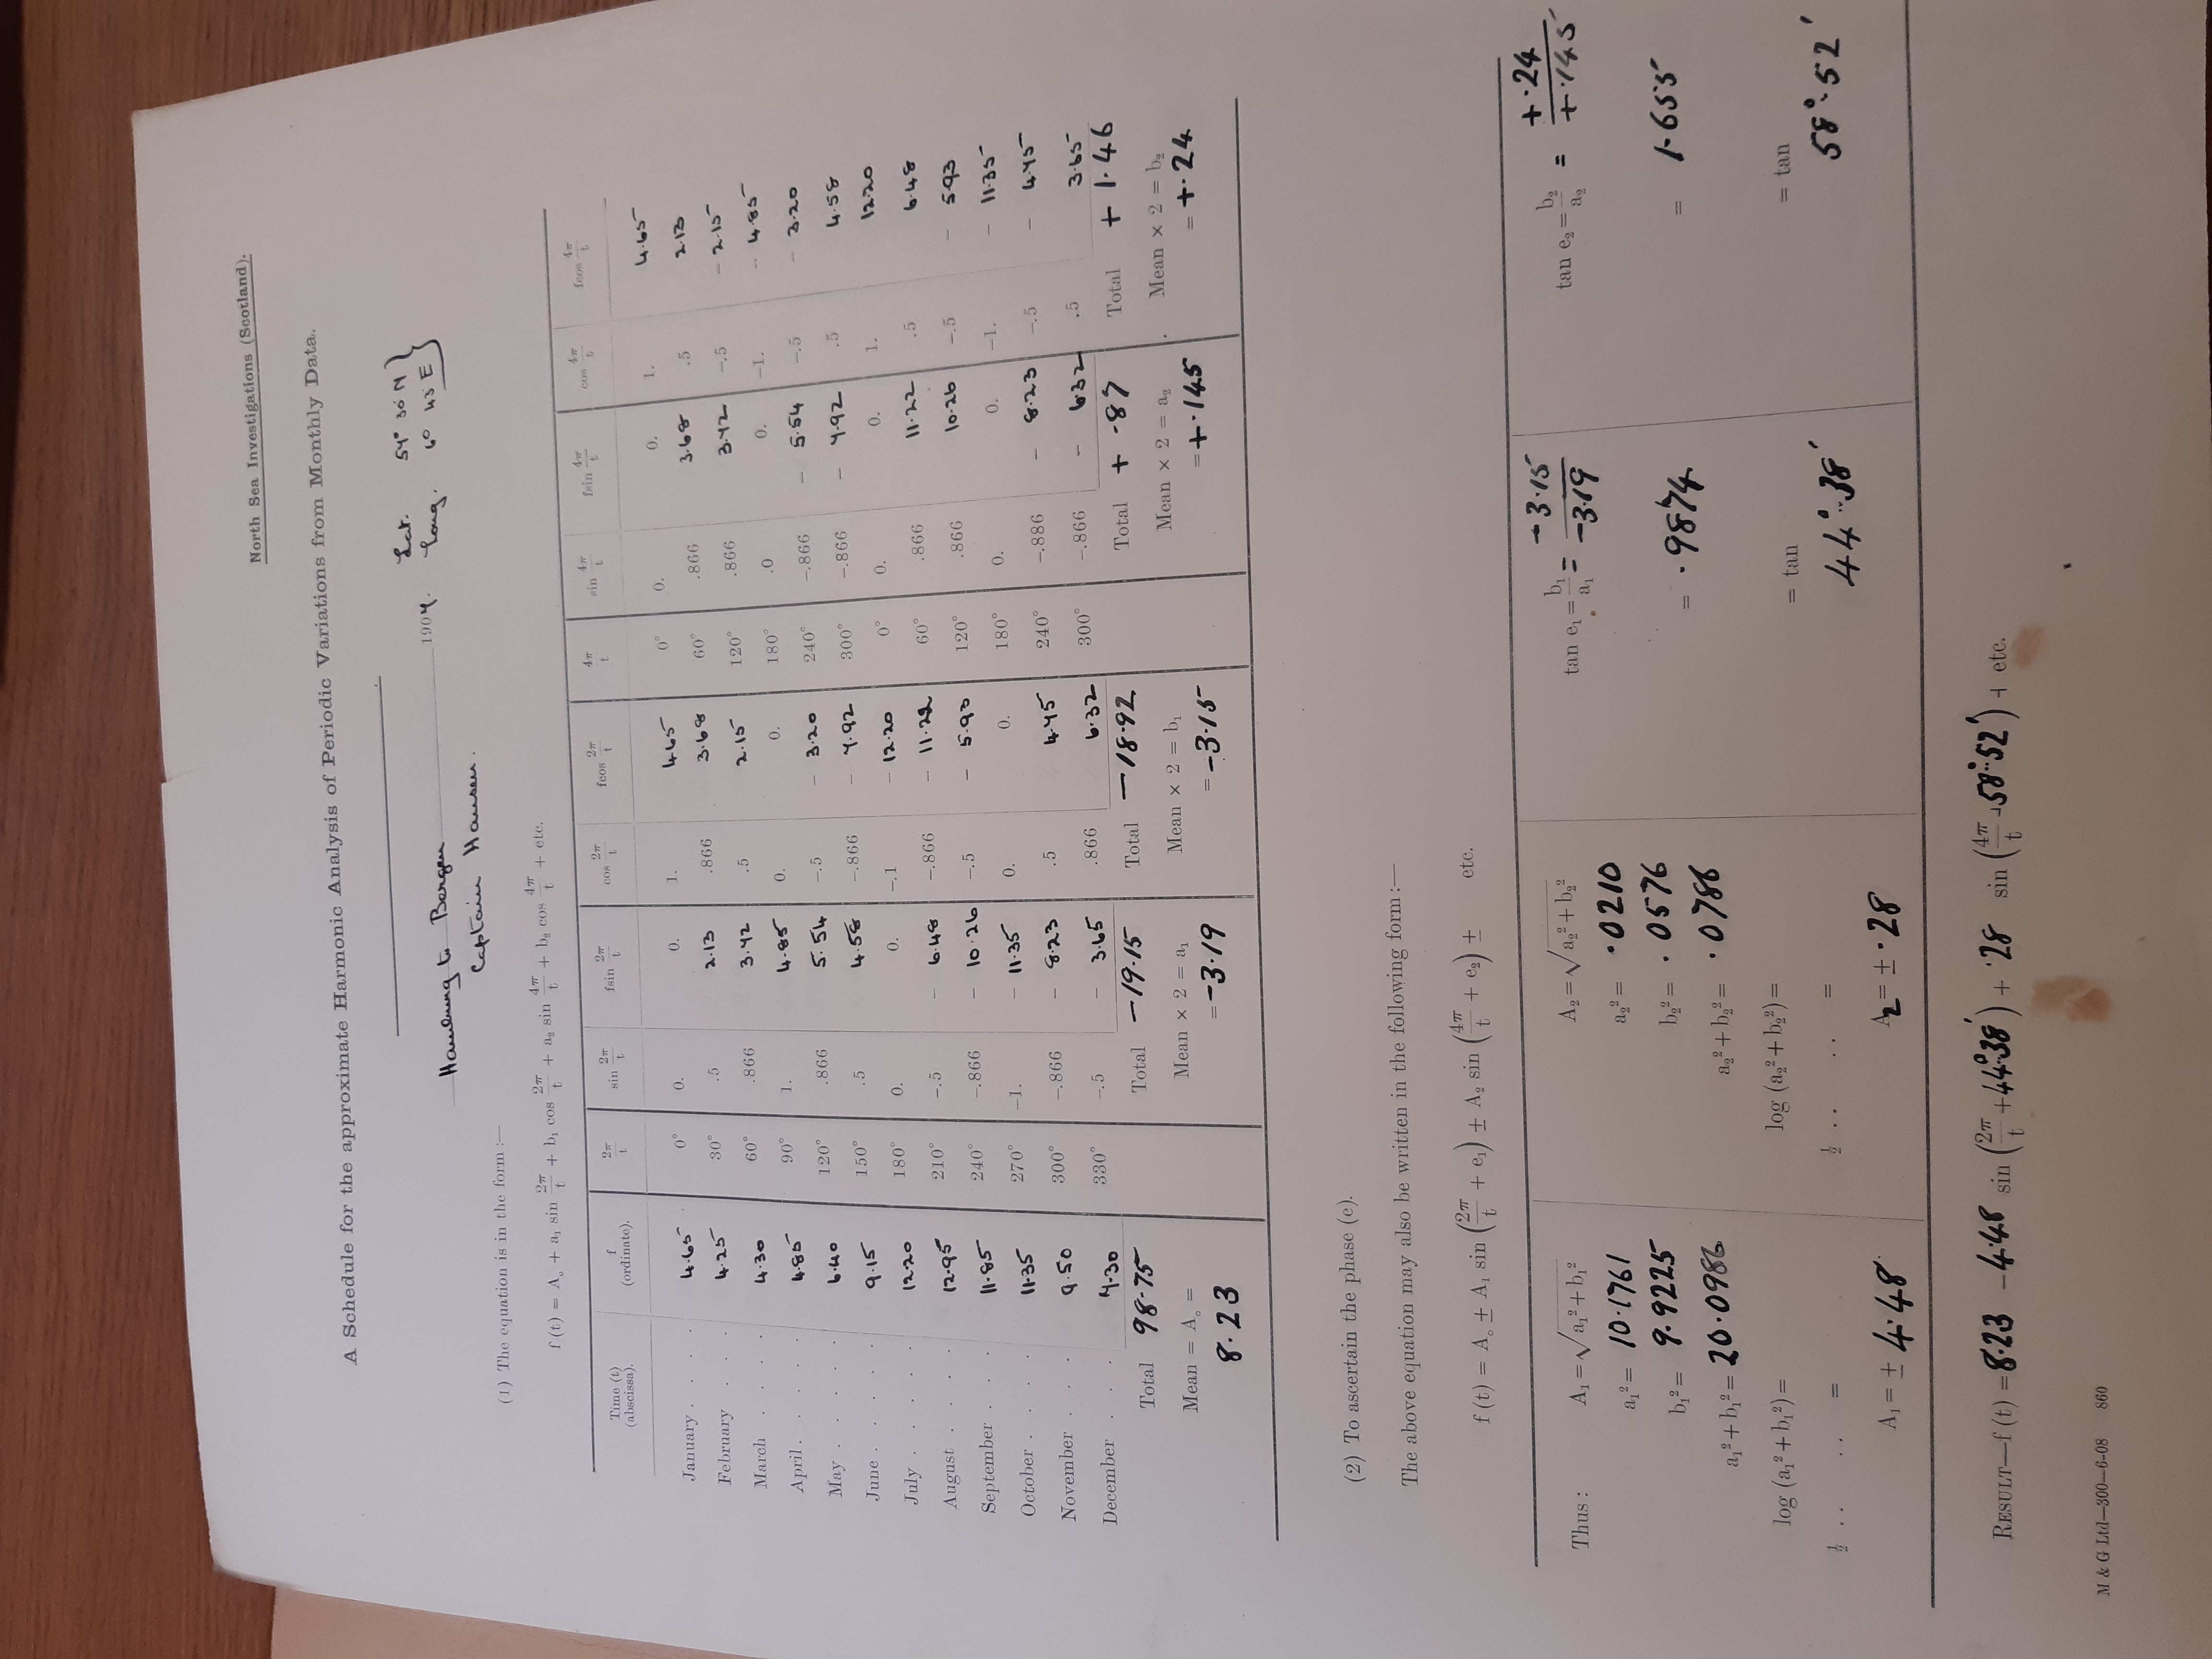 North Sea Investigations (Scotland).
A Schedule for the approximate Harmonic Analysis of Periodic Variations from Monthly Data.
Hamburg to Bergen 1907. Lat. 54° 30' N
Captain Hansen. Long. 6° 43' E
(1) The equation is in the form :—
f (t) = A₀ + a₁ sin 2π/t + b₁ cos 2π/t + a₂ sin 4π/t + b₂ cos 4π/t + etc.
Time (t) (abscissa). f (ordinate). 2π/t sin 2π/t fsin 2π/t cos 2π/t fcos 2π/t 4π/t sin 4π/t fsin 4π/t cos 4π/t fcos 4π/t
January . . . . 4.65 0° 0. 0. 1. 4.65 0° 0. 0. 1. 4.65
February . . . 4.25 30° .5 2.13 .866 3.68 60° .866 3.68 .5 2.13
March . . . . 4.30 60° .866 3.72 .5 2.15 120° .866 3.72 −.5 − 2.15
April . . . . . 4.85 90° 1. 4.85 0. 0. 180° .0 0. −1. − 4.85
May . . . . . 6.40 120° .866 5.54 −.5 − 3.20 240° −.866 − 5.54 −.5 − 3.20
June . . . . . 9.15 150° .5 4.58 −.866 − 7.92 300° −.866 − 7.92 .5 4.58
July . . . . . 12.20 180° 0. 0. −.1 − 12.20 0° 0. 0. 1. 12.20
August . . . . 12.95 210° −.5 − 6.48 −.866 − 11.22 60° .866 11.22 .5 6.48
September . . . 11.85 240° −.866 − 10.26 −.5 − 5.93 120° .866 10.26 −.5 − 5.93
October . . . . 11.35 270° −1. − 11.35 0. 0. 180° 0. 0. −1. − 11.35
November . . . 9.50 300° −.866 − 8.23 .5 4.75 240° −.886 − 8.23 −.5 − 4.75
December . . . 7.30 330° −.5 − 3.65 .866 6.32 300° −.866 − 6.32 .5 3.65
Total 98.75 Total −19.15 Total −18.92 Total + .87 Total + 1.46
Mean = A₀ = Mean × 2 = a₁ Mean × 2 = b₁ Mean × 2 = a₂ Mean × 2 = b₂
8.23 = −3.19 = −3.15 = +.145 = +.24
(2) To ascertain the phase (e).
The above equation may also be written in the following form :—
f (t) = A₀ ± A₁ sin (2π/t + e₁) ± A₂ sin (4π/t + e₂) ± etc.
Thus : A₁ = √a₁² + b₁² A₂ = √a₂² + b₂² tan e₁ = b₁/a₁ = −3.15/−3.19 tan e₂ = b₂/a₂ = +.24/+.145
a₁² = 10.1761 a₂² = .0210
b₁² = 9.9225 b₂² = .0576 = .9874 = 1.655
a₁² + b₁² = 20.0986 a₂² + b₂² = .0786
log (a₁² + b₁²) = log (a₂² + b₂²) = = tan = tan
½ . . . . = ½ . . . . = 44°.38' 58°.52'
A₁ = ± 4.48 A₂ = ± .28
RESULT—f (t) = 8.23 − 4.48 sin (2π/t + 44°.38') + .28 sin (4π/t + 58°.52') + etc.
M & G Ltd—300—6-08 860